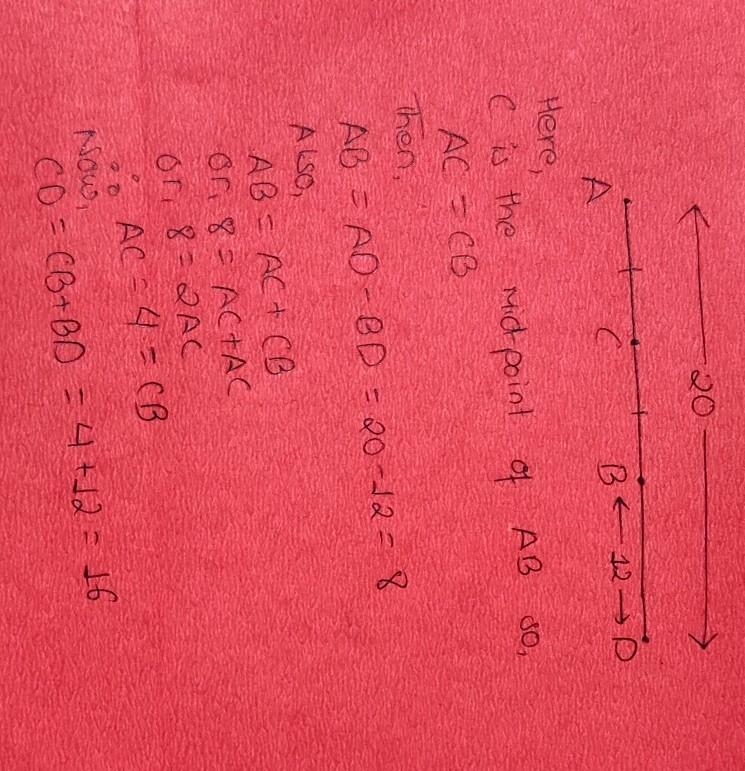 20
A C B ← 12 → D
Here,
C is the midpoint of AB so,
AC = CB
Then,
AB = AD - BD = 20 - 12 = 8
Also,
AB = AC + CB
or, 8 = AC + AC
or, 8 = 2AC
∴ AC = 4 = CB
Now,
CD = CB + BD = 4 + 12 = 16